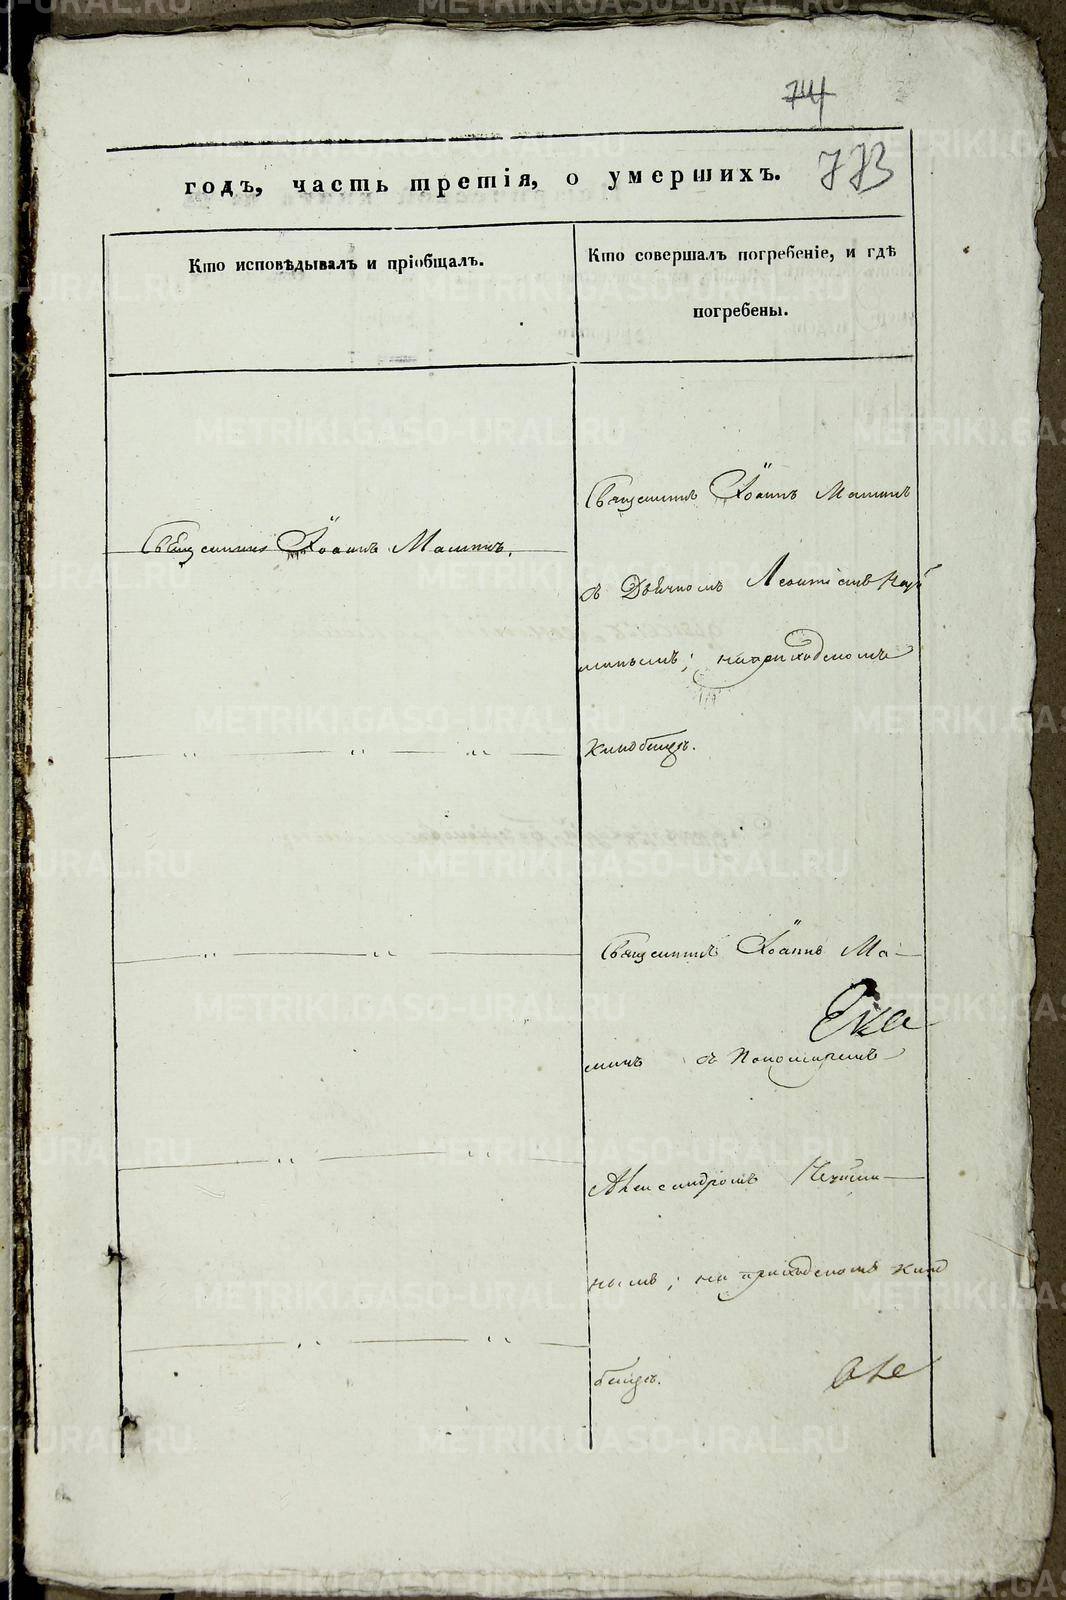 74
773
годъ, часть третія, о умершихъ.
Кто исповѣдывалъ и пріобщалъ.
Кто совершалъ погребеніе, и гдѣ
погребены.
Священник Іоаннъ Маминъ.
Священникъ Іоаннъ Маминъ
съ Дьячкомъ Леонтіемъ
приходскомъ
кладбищѣ.
Священникъ Іоаннъ Ма-
минъ съ Пономаремъ
Александромъ
нымъ; на приходскомъ клад
бищѣ.
METRIKI.GASO-URAL.RU